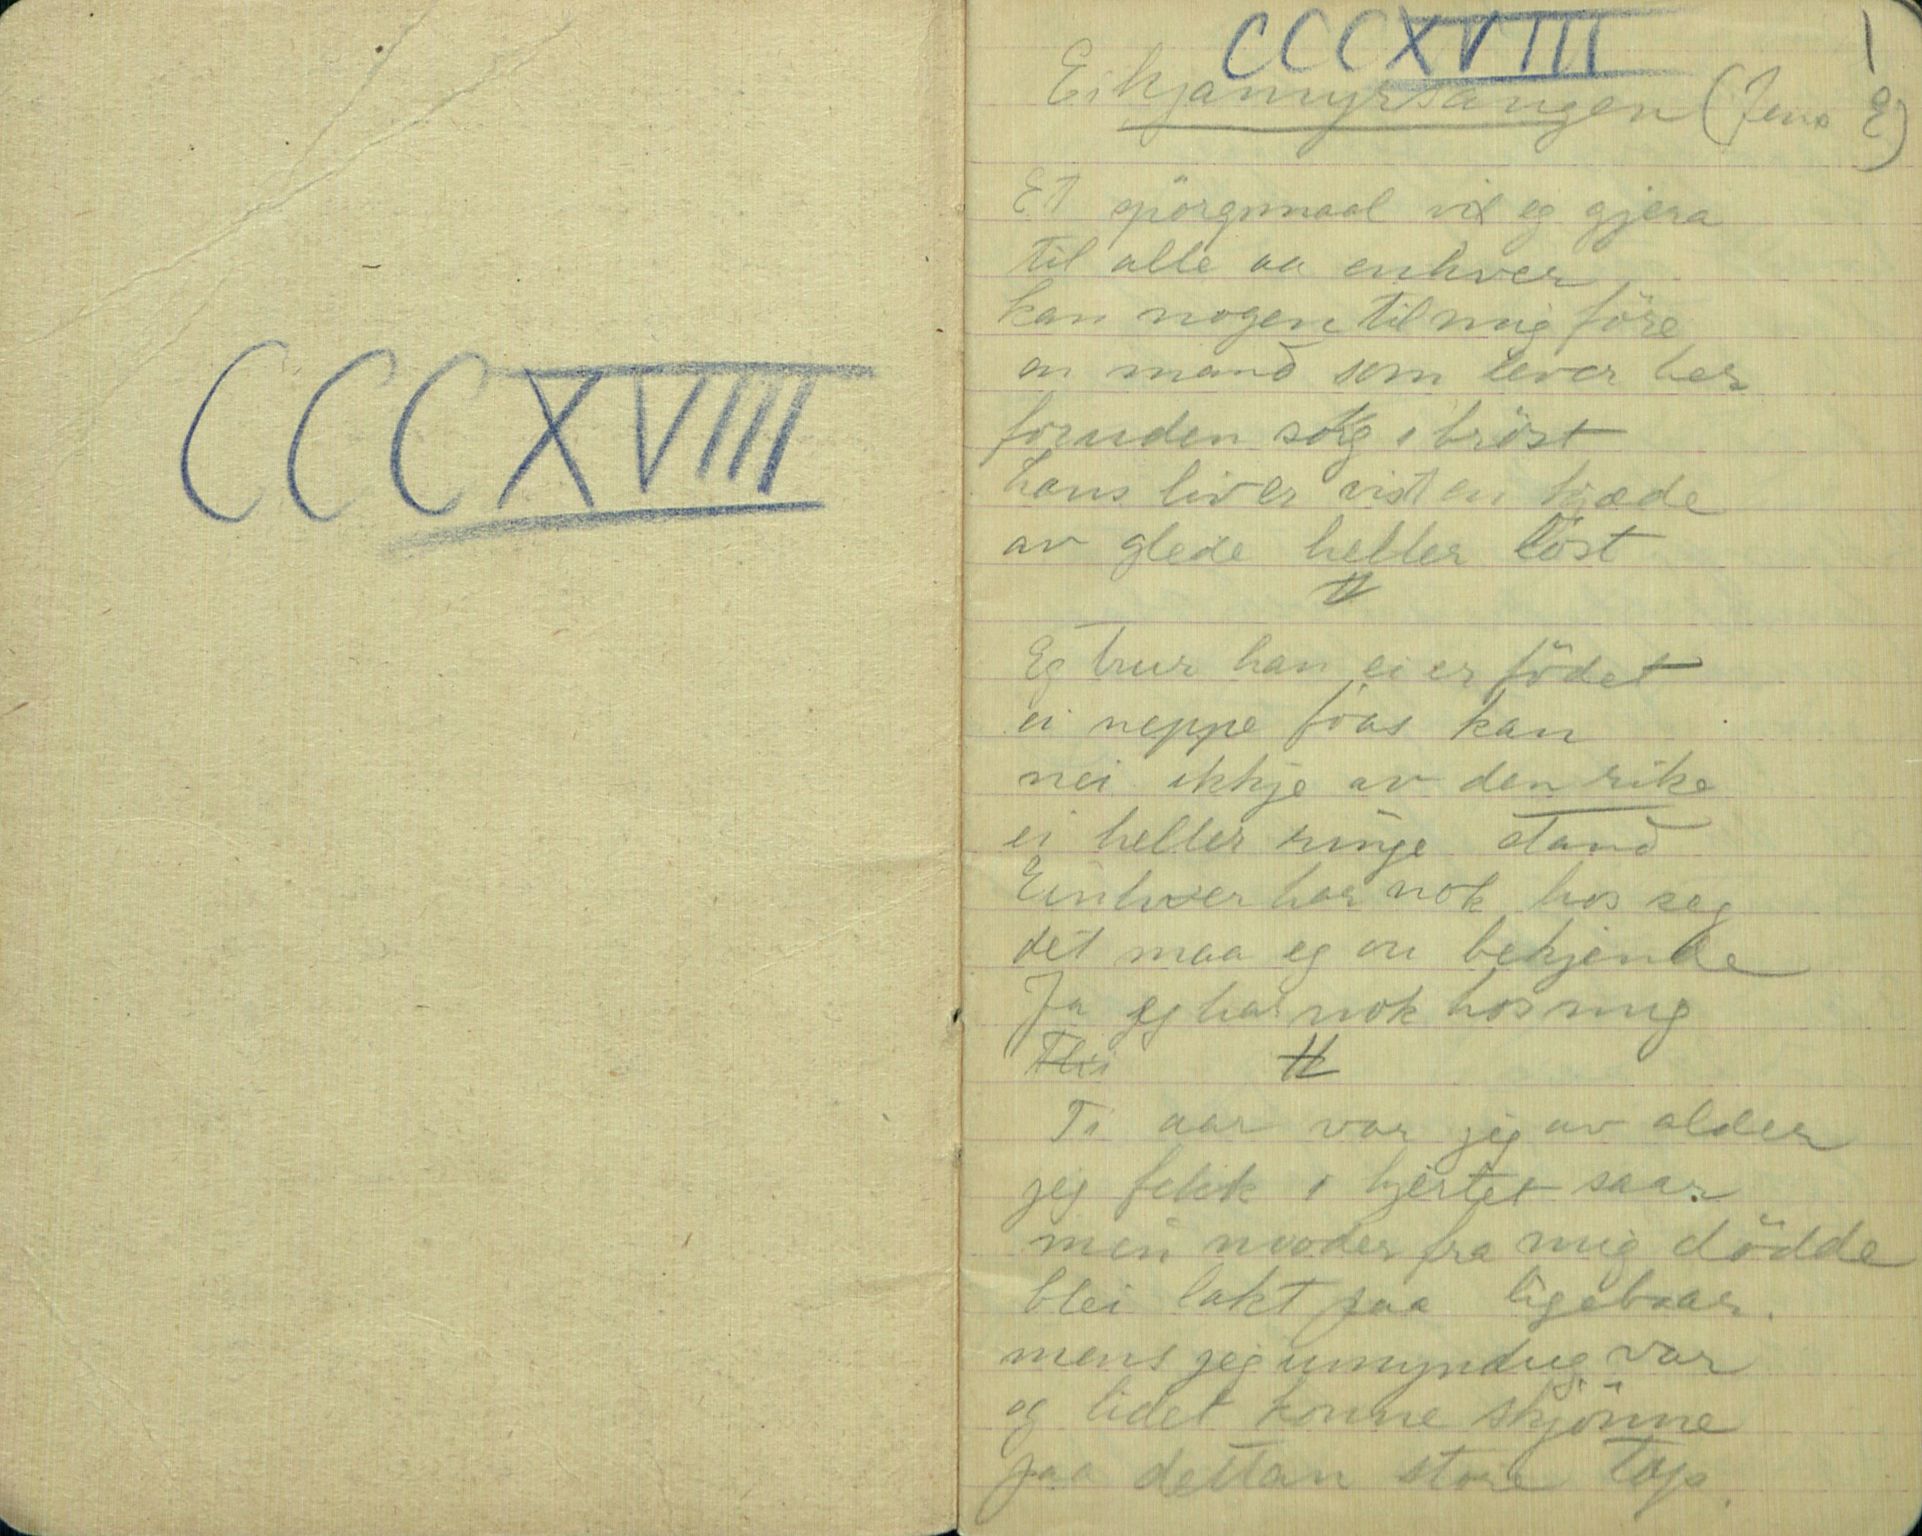 CCCXVIII
CCCXVIII
1
Eikjamyrsangen (Jens E)
Et spörgsmaal vil eg gjera
til alle aa enhver
kan nogen til mig före
en mand som lever her
foruden sorg i bröst
hans liv er vist en kjæde
av glede heller löst
#
Eg trur han ei er födet
ei neppe föas kan
nei ikkje av den rike
ei heller ringe stand
Einhver har nok hos seg
det maa eg no bekjende
Ja eg har nok hos mig
#
Ti aar var jeg av alder
jeg fekk i hjertet saar
min mooder fra mig dödde
blei lakt paa ligebaar.
mens jeg umyndig var
og lidet konne skjönne
paa dettan store tap.